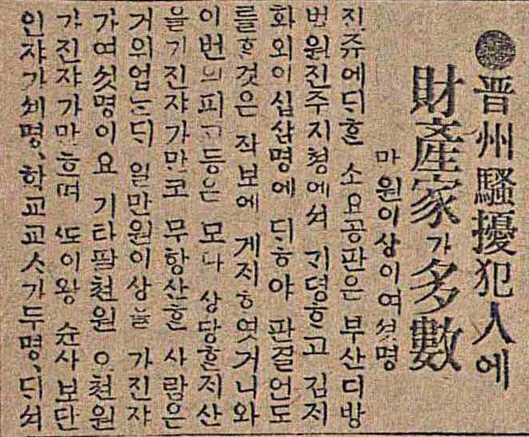 ●晋州騷擾犯人에
財產家가多數
마원이상이여섯명
진쥬에ᄃᆡᄒᆞᆫ 소요공판은 부산디방
법원진주지쳥에셔 ᄀᆡ뎡ᄒᆞ고 김
화외이십삼명에 ᄃᆡᄒᆞ야 판결언도
를ᄒᆞᆫ것은 작보에 게ᄌᆡᄒᆞ엿거니와
이번의피고등은 모다 상당ᄒᆞᆫᄌᆡ산
을기진쟈가만코 무항산ᄒᆞᆫ 사람은
거의업는ᄃᆡ 일만원이상을 가진쟈
가여섯명이요 기타팔쳔원 오쳔원
가진쟈가만흐며 ᄯᅩ이왕 슌사보단
인쟈가세명、학교교ᄉᆞ가두명、ᄃᆡ셔